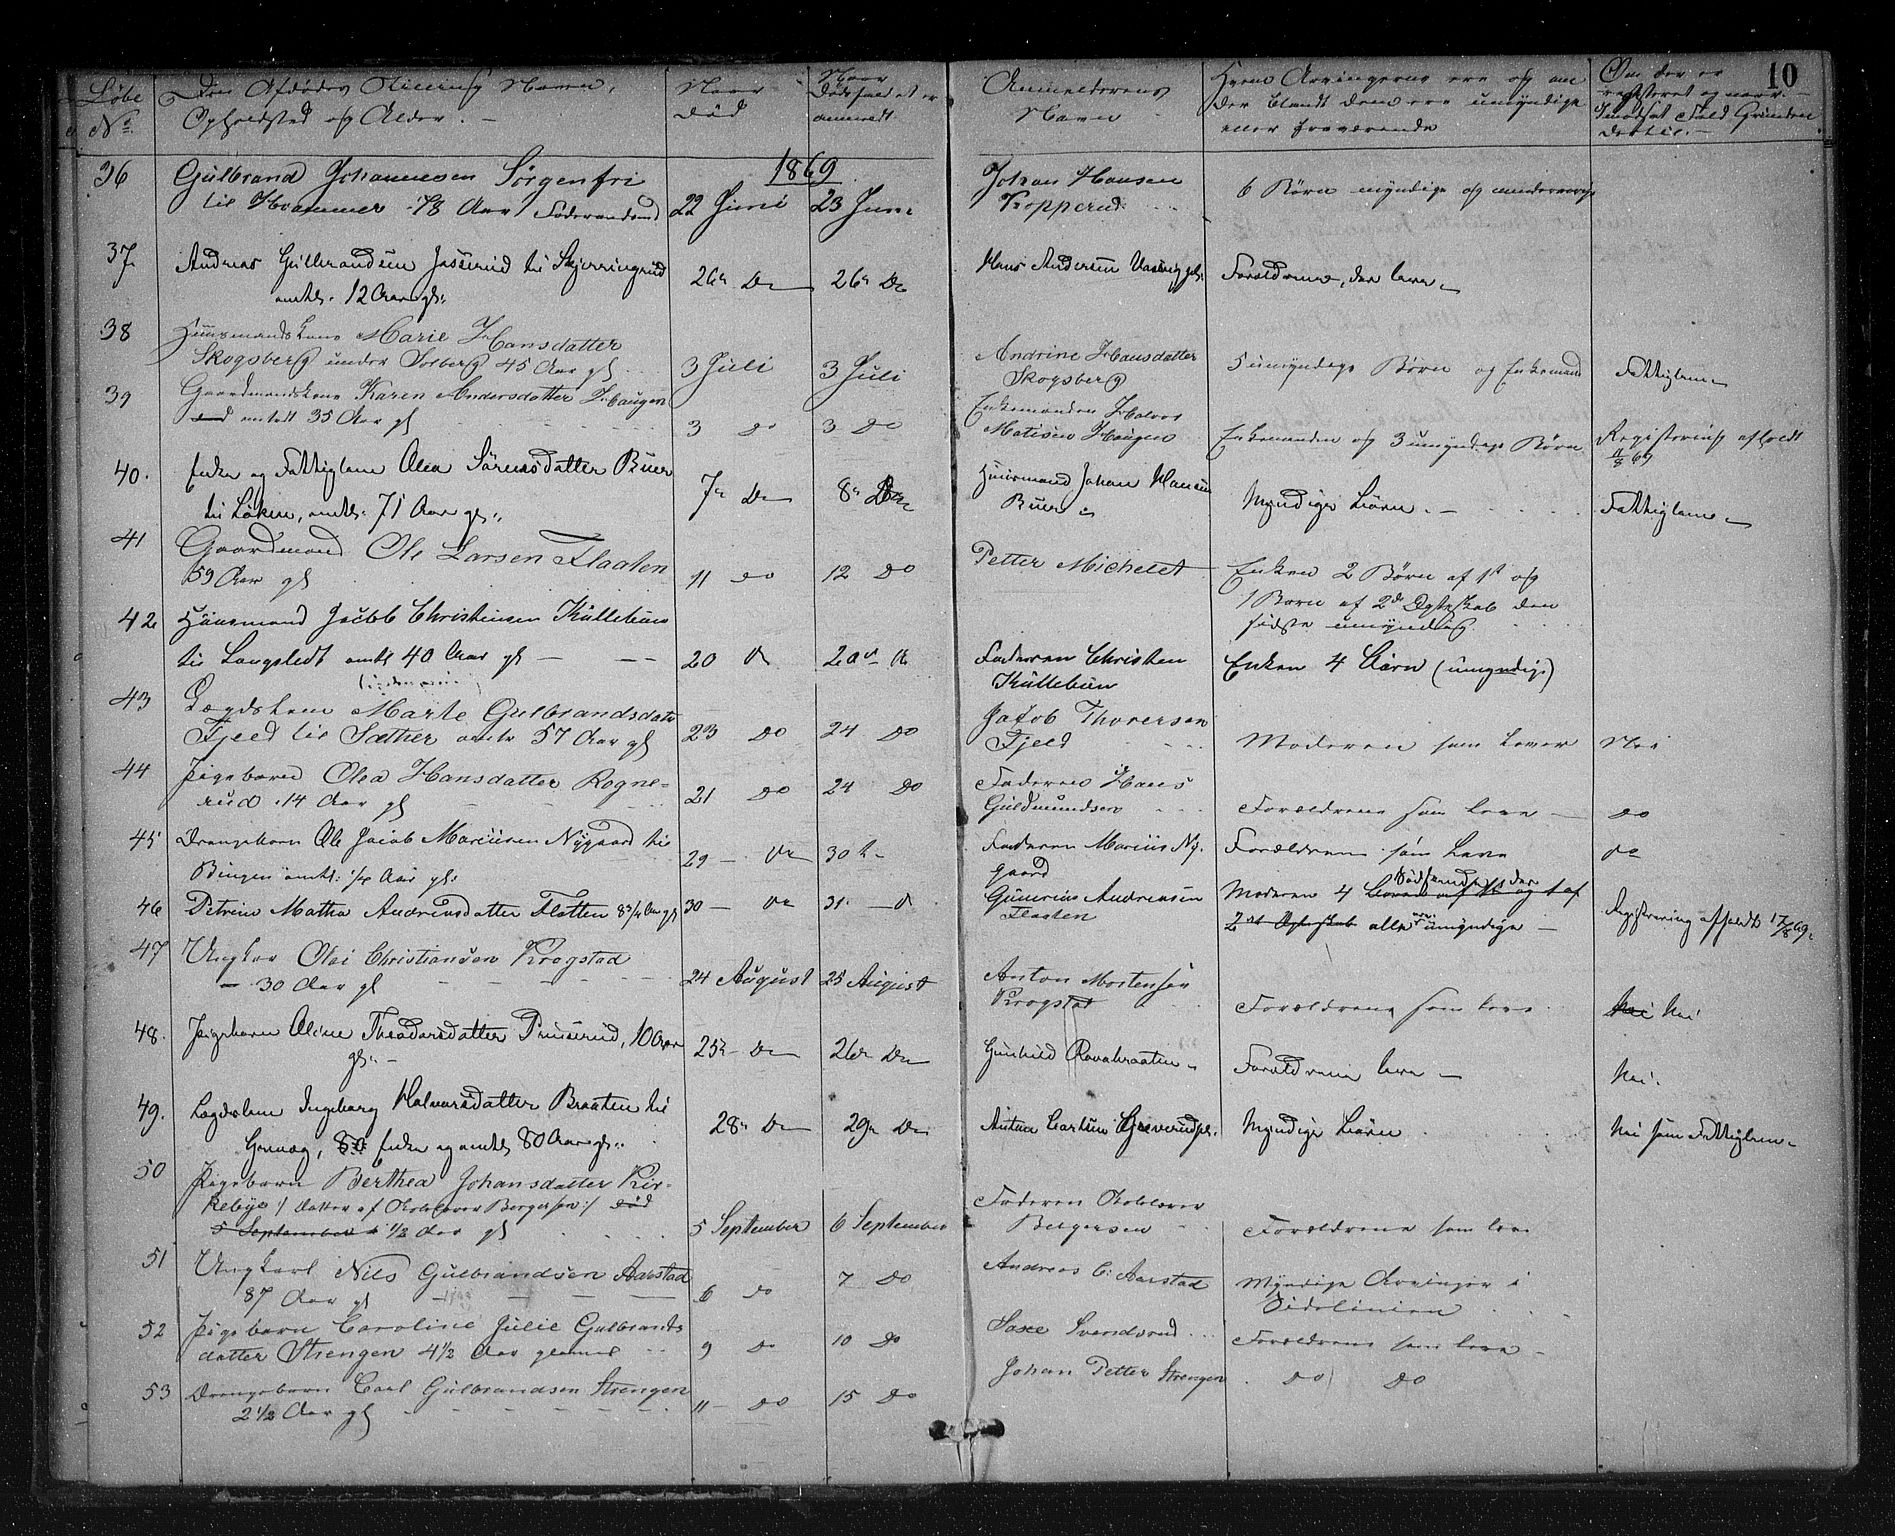 10
Løbe No
Den Afdødes Stilling, Navn,
Opholdsted og Alder. -
Naar
død
Naar
Dødsfaldet er
anmeldt
Anmelderens
Navn
Hvem Arvingerne ere og om
der blandt dem ere umyndige
eller fraværende
Om der er
registeret og naar. -
I modsat Fald Grunden
dertil. -
1869
36 Gulbrand Johannesen Sørgenfri
til Hvammer 78 Aar Føderaadsmd 22 Juni 23 Juni
Johan Hansen
Kopperud
6 Børn myndige og nærværende
37 Andreas Gulbrandsen til
omtr. 12 Aar gl. 26de Do 26de Do
Hans Andersen
Forældrene, der leve
38 Huusmandskone Marie Hansdatter
Skogsberg under Sorberg 45 Aar gl 3 Juli 3 Juli
Andrine Hansdatter
Skogsberg
5 umyndige Børn og Enkemand Fattiglem
39 Gaardmandskone Karen Andersdatter Haugen
omtrt 35 Aar gl 3 Do 3 Do
Enkemanden Halvor
Matisen Haugen
Enkemanden og 3 umyndige Børn Registering afholdt
11/8 69
40. Enke og Fattiglem Olea Sørensdatter Buer
til Løken, omtr. 71 Aar gl. 7de Do 8de Do
Huusmand Johan Hansen
Buer
Myndige Børn. - Fattiglem
41 Gaardmand Ole Larsen Flaaten
59 Aar gl 11 Do 12 Do
Petter Michelet
Enken 2 Børn af 1st og
1 Barn af 2de Ægteskab den
sidste umyndig
42 Huusmand Jacob Christensen Kullebun
til Langstedt omtr 40 Aar gl 20 Do
Faderen Christen
Kullebun
Enken 4 Børn (umyndige)
43 Lægdslem Marte Gulbrandsdatr
Fjeld til Sæther omtr 57 Aar gl 23 Do 24 Do
Jakob Thoresen
Fjeld
Moderen som lever Nei
44 Pigebarn Olea Hansdatter Rogne-
rud 14 Aar gl 21 Do 24 Do
Faderen Hans
Guldmundsen
Forældrene som leve Do
45 Drengebarn Ole Jacob Mariusen Nygaard til
Bingen omtr. Aar gl. 29 Do 30
Faderen Marius Ny-
gaard
Forældrene som leve Do
46 Petrine Mathea Andreasdatter Flatten 8 3/4 Aar gl 30 Do 31
Gunerius Andreassen
Flaaten
Moderen 4 Sødskende
alle umyndige
Registrering afholdt 17/8 69.
47 Ungkar Olai Christiansen Krogstad
30 Aar gl 24 August 25 August
Anton Mortensen
Krogstad
Forældrene som leve Nei
48. Pigebarn Oline Theodorsdatter 10 Aar
gl. 25de Do 26de Do
Gunhild
Forældrene leve Nei.
49. Lægdslem Ingeborg Halvorsdatter Braaten til
Enke og omtr 80 Aar gl. 28de Do 29de Do
Anton
Myndige Børn Nei som Fattiglem
50 Pigebarn Berthea Johansdatter Kir-
kebye /: datter af Bergersen :/ død
5 September 1/2 Aar gl 5 September 6 September
Faderen
Bergersen
Forældrene som leve
51 Ungkarl Nils Gulbrandsen Aarstad
87 Aar gl 6 Do 7 Do
Andreas C: Aarstad
Myndige Arvinger i
Sidelinien
52 Pigebarn Caroline Julie Gulbrands
datter Strengen 4 1/2 Aar gammel 9 Do 10 Do
Svendsrud
Forældrene som leve
53 Drengebarn Carl Gulbrandsen Strengen
2 1/2 Aar gl 11 Do 15 Do
Johan Petter Strengen
Do Do